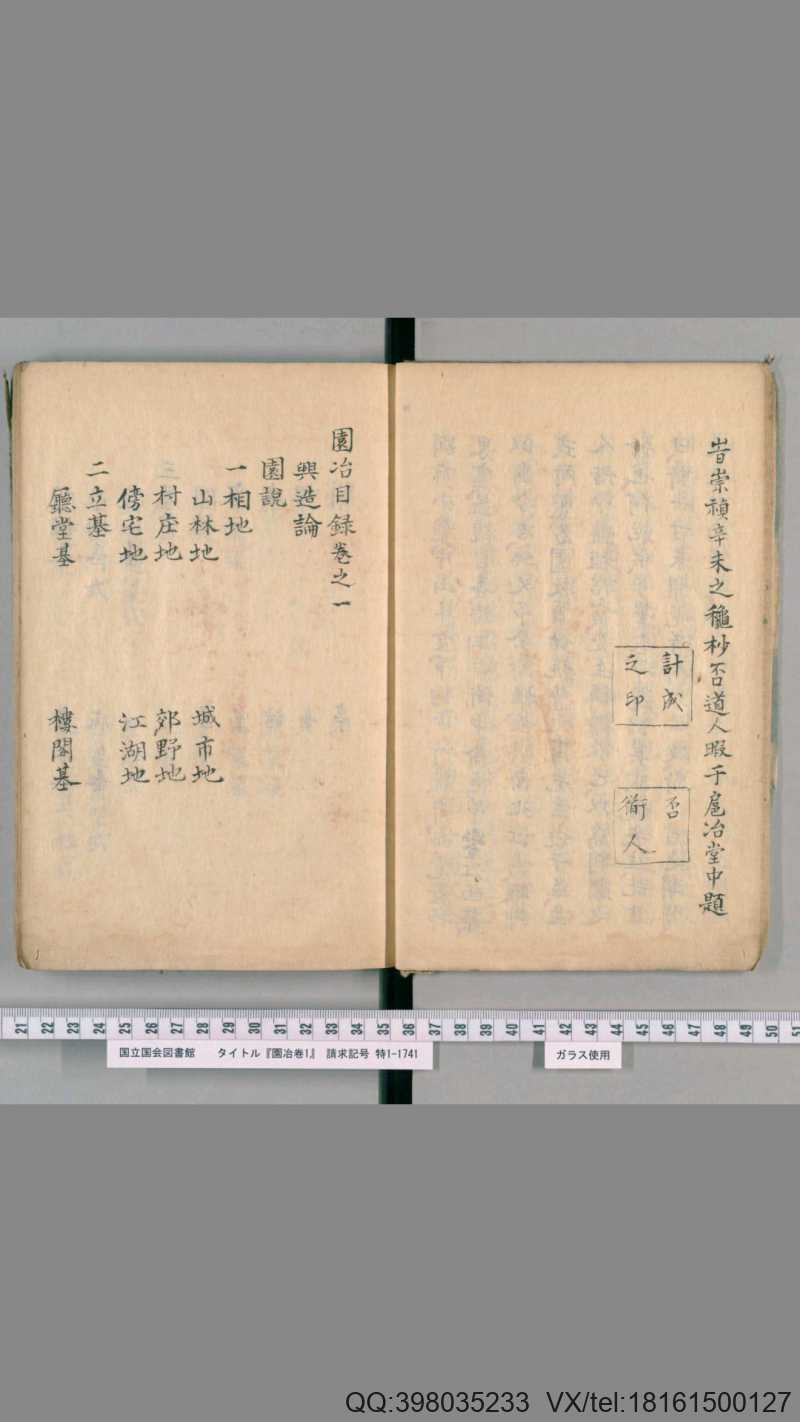 旹崇禎辛未之穐杪否道人暇于扈冶堂中題
計成
之印
否
衜人
園冶目録卷之一
興造論
園說
一相地
山林地 城市地
村庄地 郊野地
傍宅地 江湖地
二立基
廳堂基 樓閣基
21 22 23 24 25 26 27 28 29 30 31 32 33 34 35 36 37 38 39 40 41 42 43 44 45 46 47 48 49 50 51
国立国会図書館 タイトル『園冶巻1』 請求記号 特1-1741
ガラス使用
QQ:398035233 VX/tel:18161500127